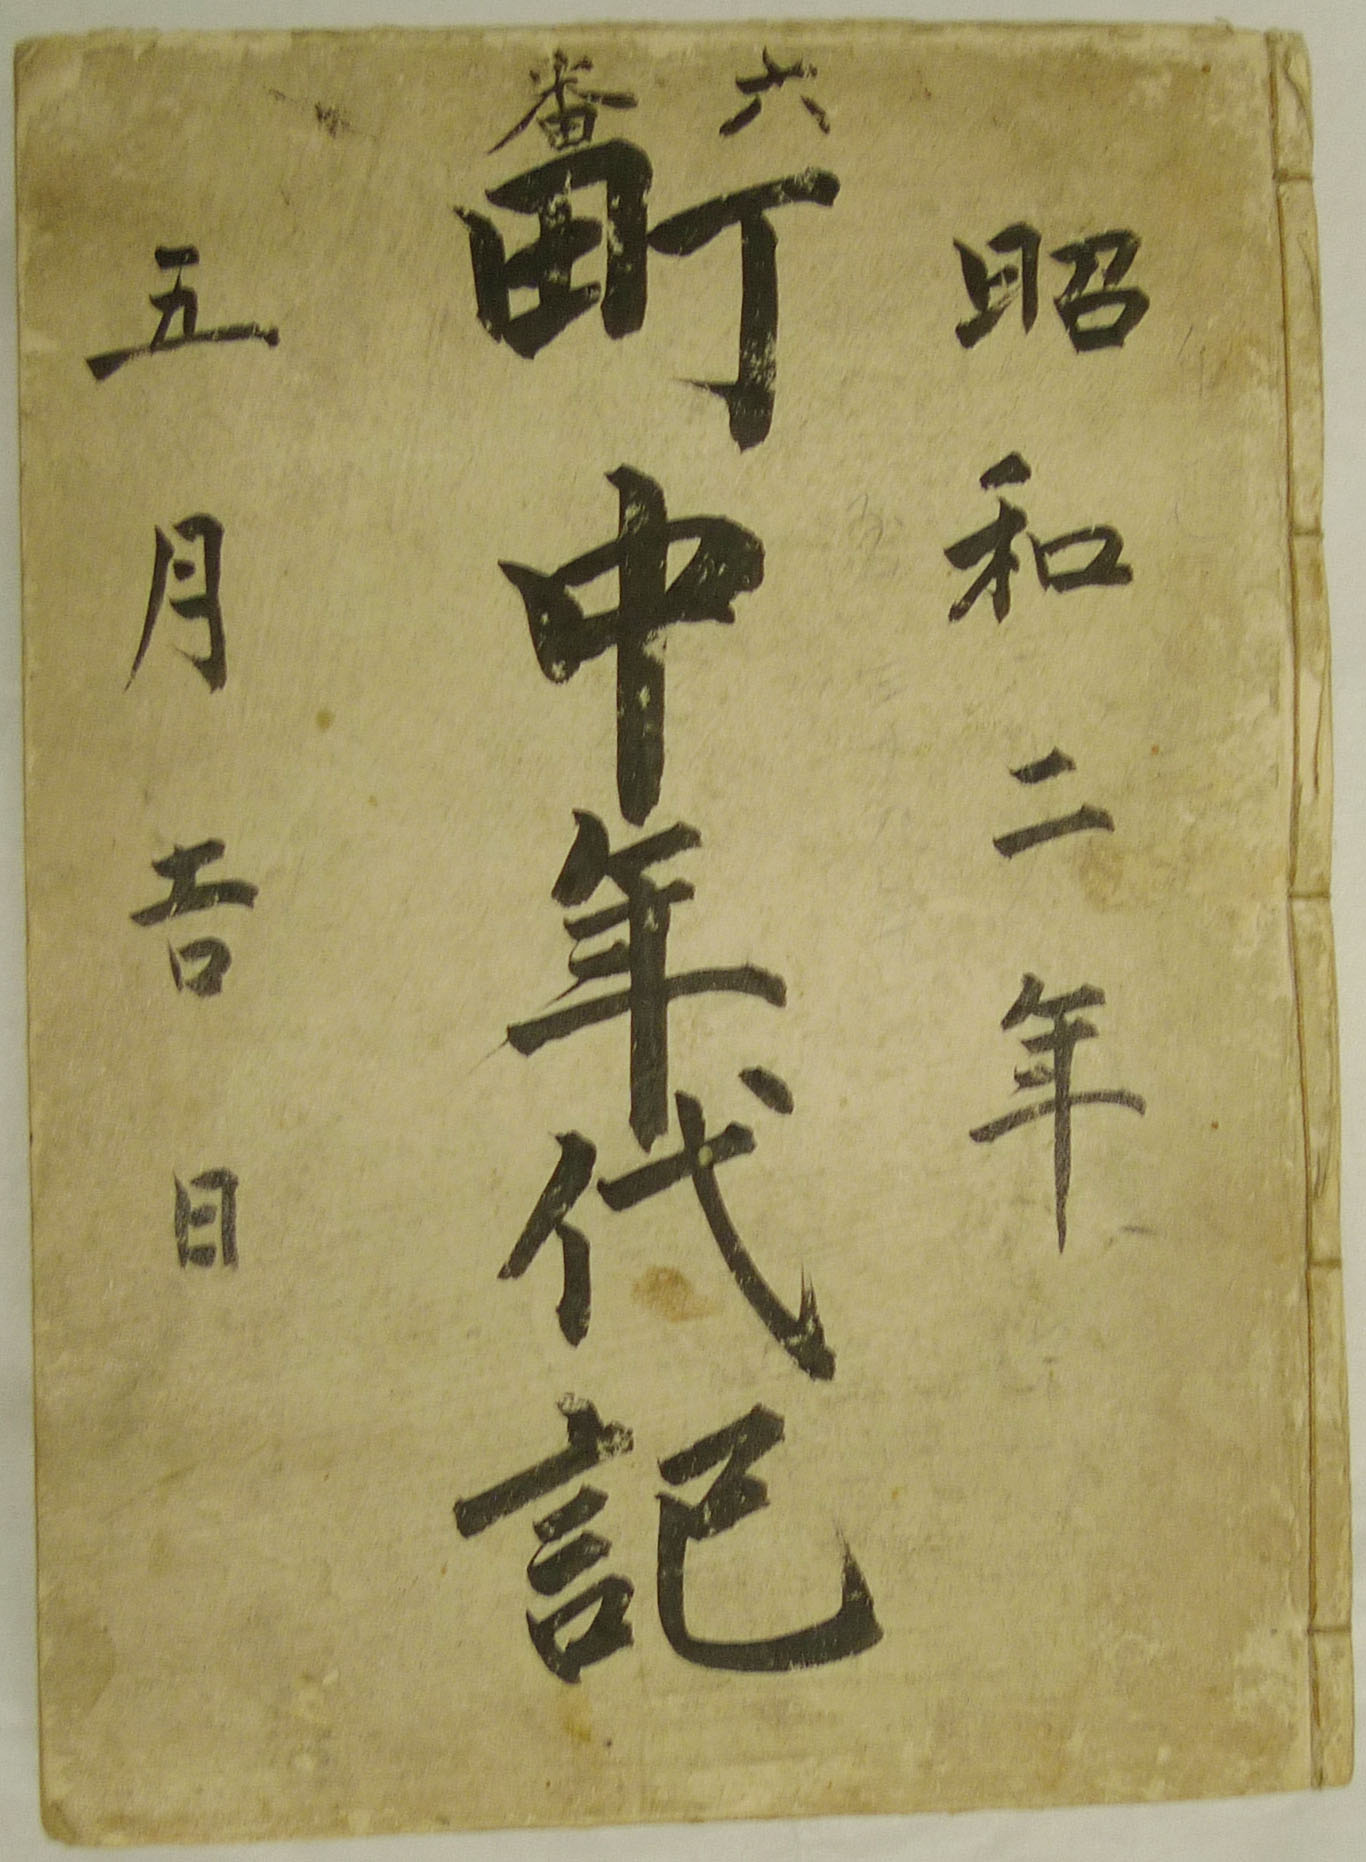 昭和二年
六番
町中年代記
五月吉日